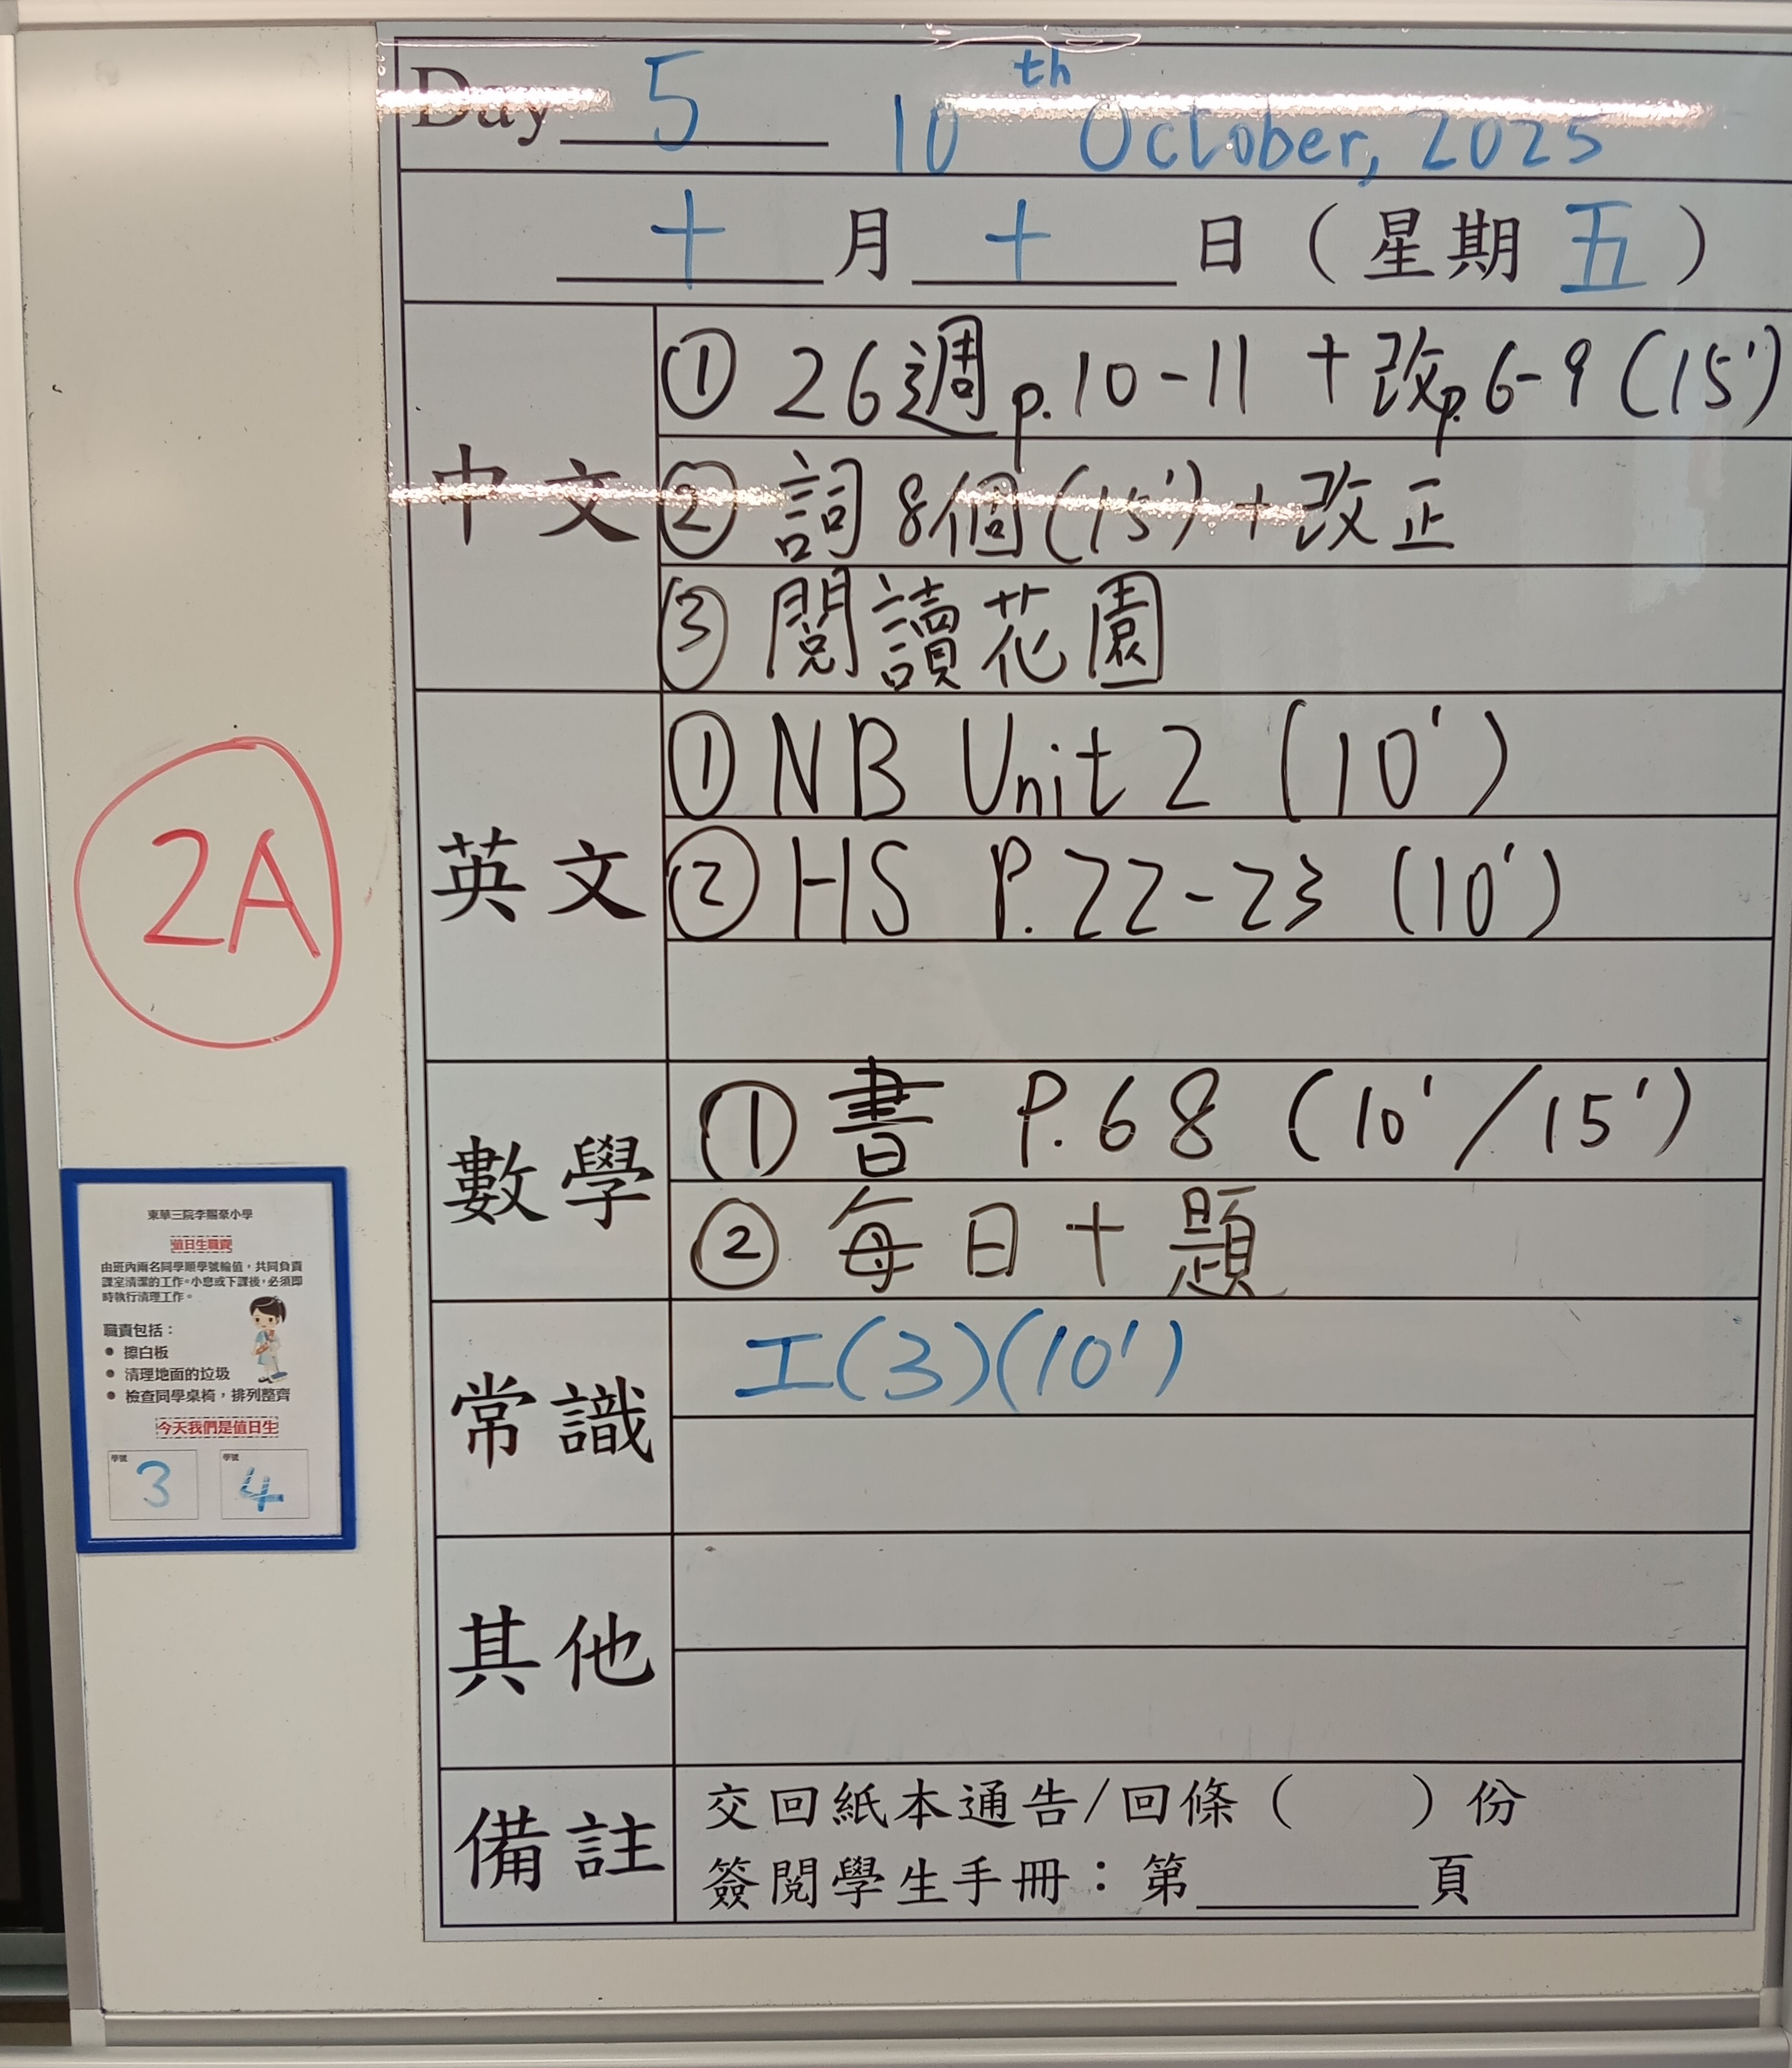 Day 5 10th October, 2025
十月十日（星期五）
中文
① 26週 p.10-11 + 改p.6-9 (15')
② 詞8個(15') + 改正
③ 閱讀花園
英文
① NB Unit 2 (10')
② HS P.22-23 (10')
數學
① 書 P.68 (10'/15')
② 每日十題
常識
工(3)(10')
其他
備註
交回紙本通告/回條（ ）份
簽閱學生手冊：第______頁
2A
東華三院李賜豪小學
值日生職責
由班內兩名同學順學號輪值，共同負責
課室清潔的工作。小息或下課後，必須即
時執行清理工作。
職責包括：
● 擦白板
● 清理地面的垃圾
● 檢查同學桌椅，排列整齊
今天我們是值日生
學號 3 學號 4